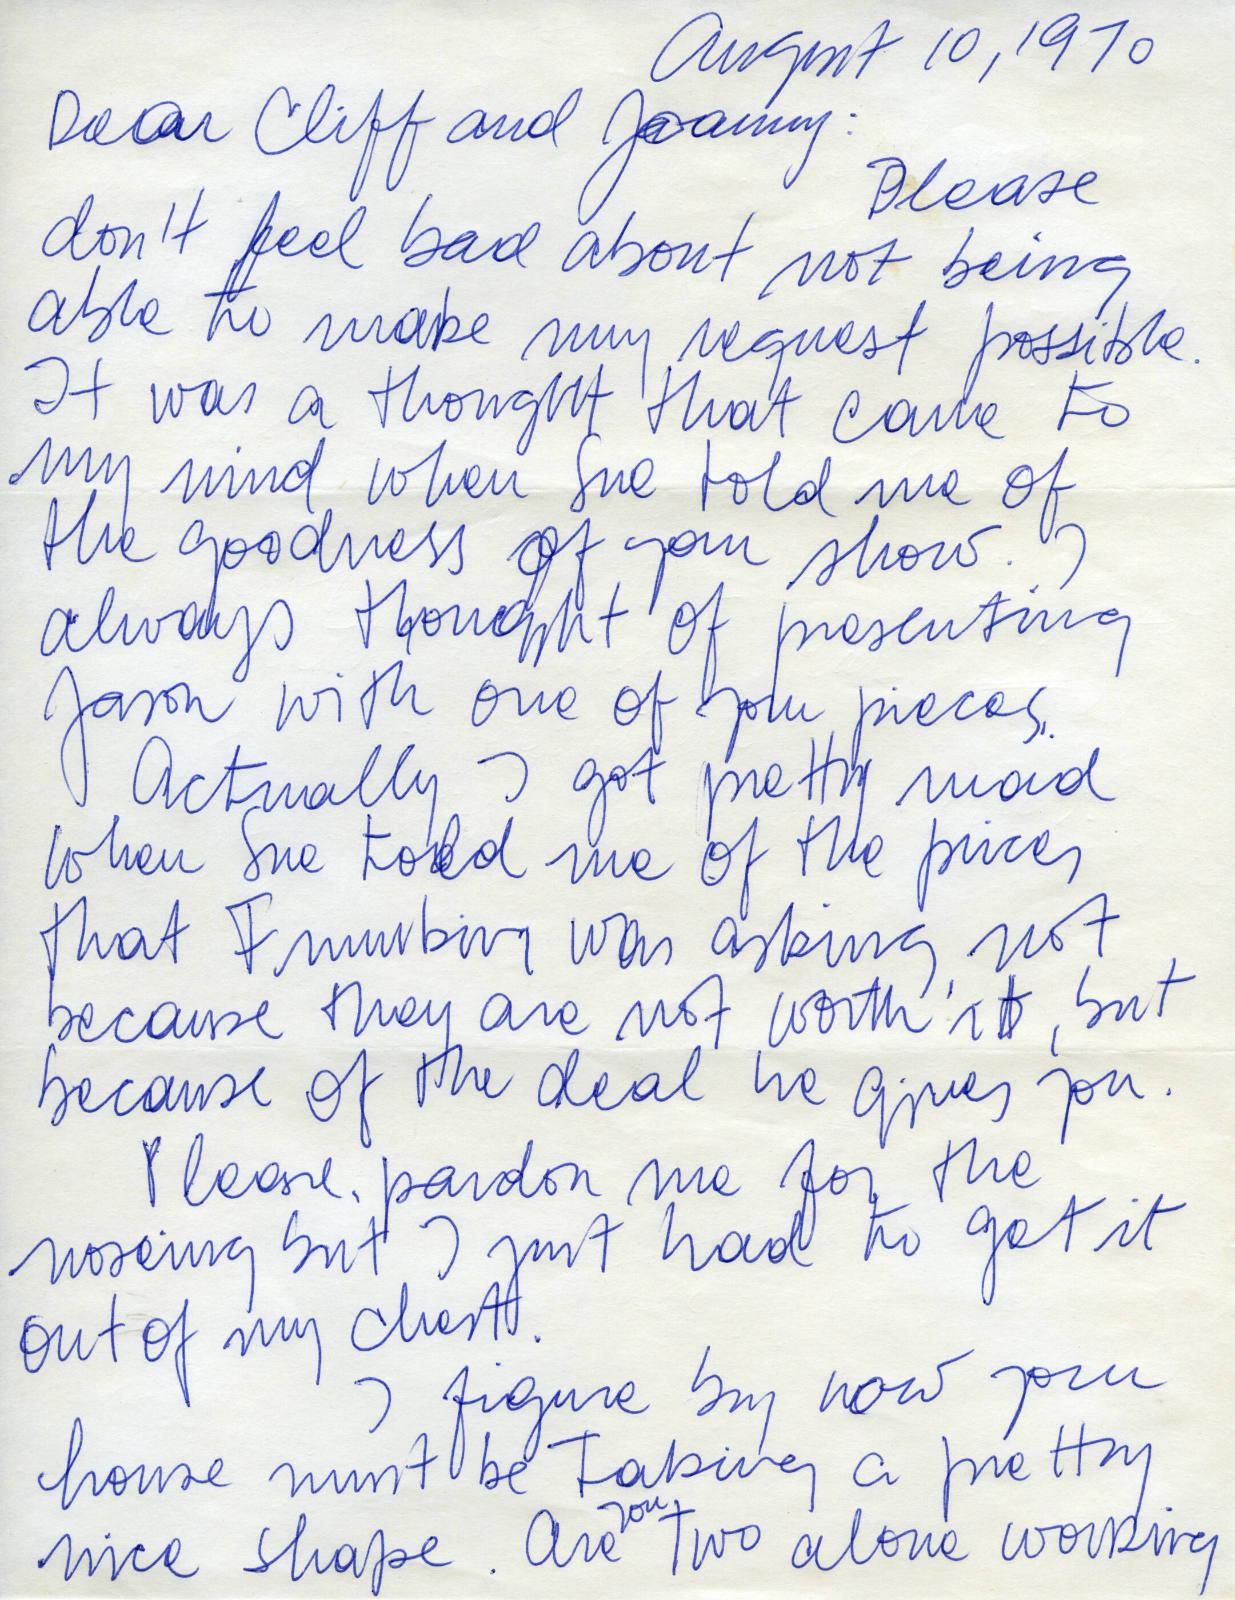 August 10, 1970
Dear Cliff and Joanny:
Please
don't feel bad about not being
able to make my request possible.
It was a thought that came to
my mind when Sue told me of
the goodness of your show. I
always thought of presenting
Jason with one of your pieces.
Actually I got pretty mad
when Sue told me of the prices
that was asking, not
because they are not worth it, but
because of the deal he gives you.
Please, pardon me for the
noseing but I just had to get it
out of my chest.
I figure by now your
house must be taking a pretty
nice shape. Are you two alone working